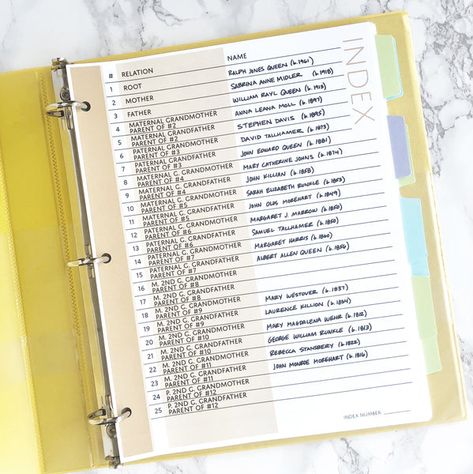 # RELATION NAME
INDEX
1 ROOT RALPH JONES QUEEN (b. 1961)
2 MOTHER SABRINA ANNE MIDLER (b. 1918)
3 FATHER WILLIAM RAYL QUEEN (b. 1913)
4 MATERNAL GRANDMOTHER ANNA LEANA MOLL (b. 1897)
PARENT OF #2
5 MATERNAL GRANDFATHER STEPHEN DAVIS
PARENT OF #2
6 PATERNAL GRANDMOTHER DAVID TALLHAMER (b. 1873)
PARENT OF #3
7 PATERNAL GRANDFATHER JOHN EDWARD QUEEN
PARENT OF #3
8 MATERNAL G. GRANDMOTHER MARY CATHERINE JOHNS (b. 1874)
PARENT OF #4
9 MATERNAL G. GRANDFATHER JOHN KILLIAN (b. 1858)
PARENT OF #4
10 MATERNAL G. GRANDMOTHER SARAH ELIZABETH RUNKLE
PARENT OF #5
11 MATERNAL G. GRANDFATHER JOHN OLDS MOREHART (b. 1849)
PARENT OF #5
12 PATERNAL G. GRANDMOTHER MARGARET J. MARROW (b. 1850)
PARENT OF #6
13 PATERNAL G. GRANDFATHER SAMUEL TALLHAMER (b. 1850)
PARENT OF #6
14 PATERNAL G. GRANDMOTHER MARGARET HARRIS (b. 1860)
PARENT OF #7
15 PATERNAL G. GRANDFATHER ALBERT ALLEN QUEEN (b. 1856)
PARENT OF #7
16 M. 2ND G. GRANDMOTHER
PARENT OF #8
17 M. 2ND G. GRANDFATHER
PARENT OF #8
18 M. 2ND G. GRANDMOTHER MARY WESTOVER (b. 1837)
PARENT OF #9
19 M. 2ND G. GRANDFATHER LAURENCE KILLION
PARENT OF #9
20 M. 2ND G. GRANDMOTHER MARY MAGDALENA WEHR
PARENT OF #10
21 M. 2ND G. GRANDFATHER GEORGE WILLIAM RUNKLE
PARENT OF #10
22 M. 2ND G. GRANDMOTHER REBECCA STANSBERY
PARENT OF #11
23 M. 2ND G. GRANDFATHER JOHN MONROE MOREHART (b. 1816)
PARENT OF #11
24 P. 2ND G. GRANDMOTHER
PARENT OF #12
25 P. 2ND G. GRANDFATHER
PARENT OF #12
INDEX NUMBER